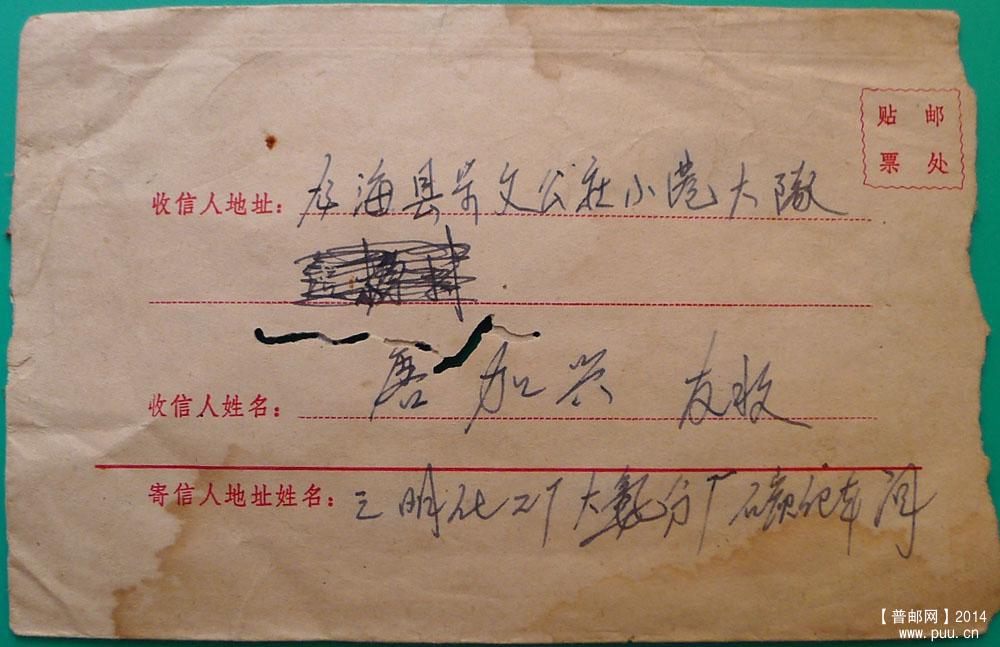 贴 邮
票 处
收信人地址: 龙海县角文公社小港大隊
收信人姓名: 唐加兴 友收
寄信人地址姓名: 三明化工厂大氨分厂碳化车间
【普邮网】2014
www.puu.cn